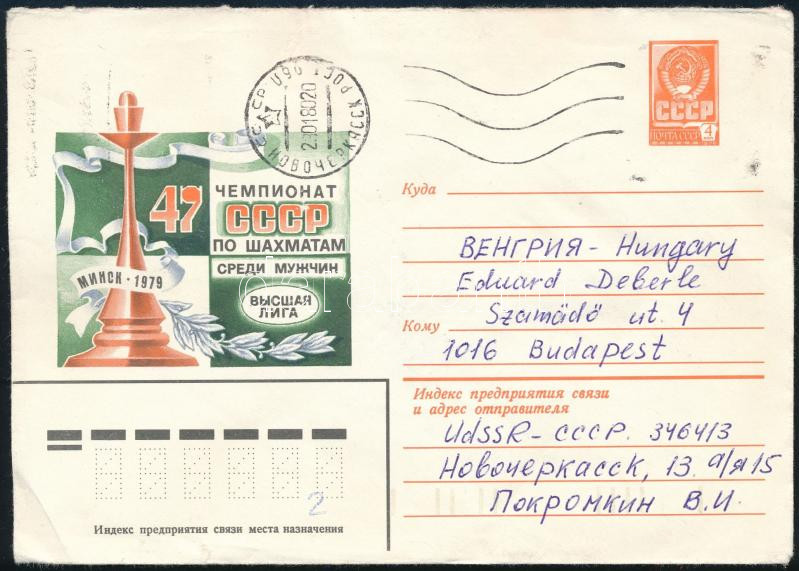 СССР 060 РОСТ
23018020
НОВОЧЕРКАССК
СССР
ПОЧТА СССР 4
47
ЧЕМПИОНАТ
СССР
ПО ШАХМАТАМ
СРЕДИ МУЖЧИН
ВЫСШАЯ
ЛИГА
МИНСК · 1979
Куда
ВЕНГРИЯ - Hungary
Eduard Deberle
Szamádó ut. 4
Кому
1016 Budapest
Индекс предприятия связи
и адрес отправителя
UdSSR - СССР. 346413
Новочеркасск, 13. а/я 15
Покромкин В.И.
2
Индекс предприятия связи места назначения